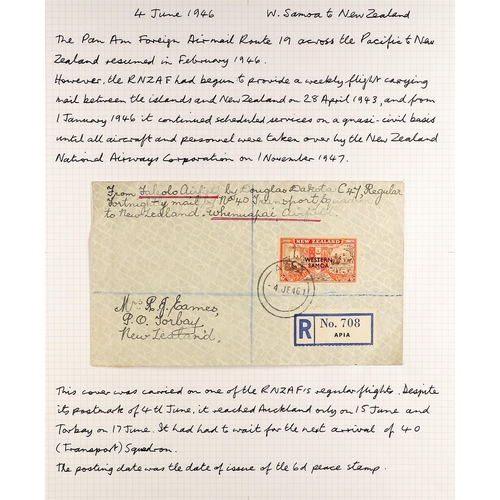 4 June 1946 W. Samoa to New Zealand
The Pan Am Foreign Airmail Route 19 across the Pacific to New
Zealand resumed in February 1946.
However, the RNZAF had begun to provide a weekly flight carrying
mail between the islands and New Zealand on 28 April 1943, and from
1 January 1946 it continued scheduled services on a quasi-civil basis
until all aircraft and personnel were taken over by the New Zealand
National Airways Corporation on 1 November 1947.
From Faleolo Airfield by Douglas Dakota C47, Regular
fortnightly mail by No 40 Transport Squadron
to New Zealand. Whenuapai Airfield.
NEW ZEALAND
WESTERN
SAMOA
APIA
4 JE 46
Mrs R. J. Eames,
P.O. Torbay,
New Zealand.
R No. 708
APIA
This cover was carried on one of the RNZAF's regular flights. Despite
its postmark of 4th June, it reached Auckland only on 15 June and
Torbay on 17 June. It had had to wait for the next arrival of 40
(Transport) Squadron.
The posting date was the date of issue of the 6d peace stamp.